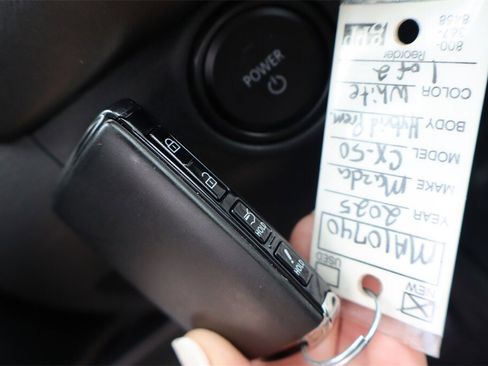 POWER
HOLD
HOLD
NEW
USED
MA10740
YEAR 2025
MAKE Mazda
MODEL CX-50
BODY Hybrid Prem.
COLOR White
1 of 2
Reorder
800-
367-
8458